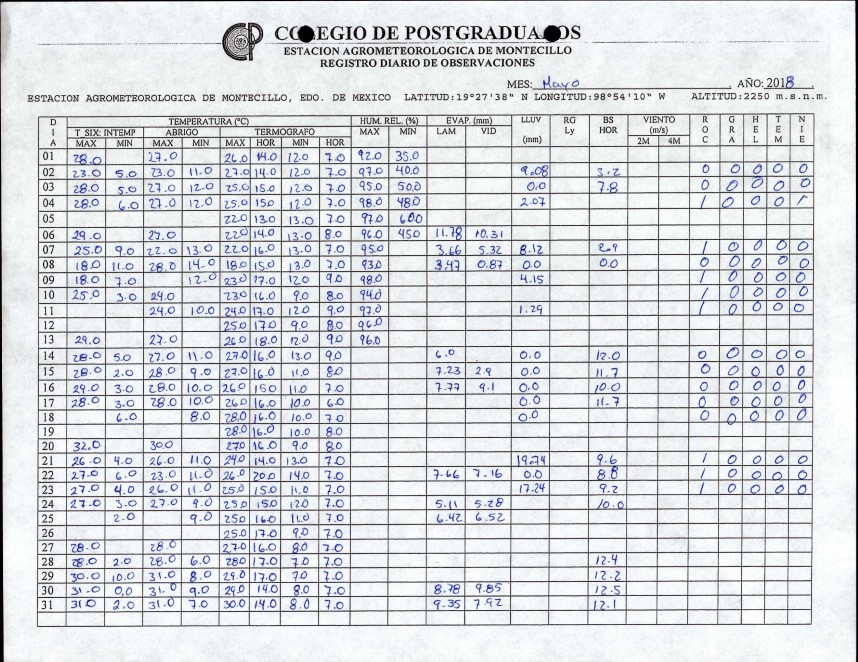 COLEGIO DE POSTGRADUADOS
ESTACION AGROMETEOROLOGICA DE MONTECILLO
REGISTRO DIARIO DE OBSERVACIONES
MES: Mayo AÑO: 2018
ESTACION AGROMETEOROLOGICA DE MONTECILLO, EDO. DE MEXICO LATITUD:19°27'38" N LONGITUD:98°54'10" W ALTITUD:2250 m.s.n.m.
DIA TEMPERATURA (°C) HUM. REL. (%) EVAP. (mm) LLUV (mm) RG Ly BS HOR VIENTO (m/s) ROC GRA HEL TEM NIE
T SIX: INTEMP ABRIGO TERMOGRAFO MAX MIN LAM VID 2M 4M
MAX MIN MAX MIN MAX HOR MIN HOR
01 28.0 27.0 26.0 14.0 12.0 7.0 92.0 35.0
02 23.0 5.0 23.0 11.0 27.0 14.0 12.0 7.0 97.0 40.0 9.08 3.2 0 0 0 0 0
03 28.0 5.0 27.0 12.0 25.0 15.0 12.0 7.0 95.0 50.0 0.0 7.8 0 0 0 0 0
04 28.0 6.0 27.0 12.0 25.0 15.0 12.0 7.0 98.0 48.0 2.07 1 0 0 0 1
05 22.0 13.0 13.0 7.0 97.0 60.0
06 29.0 27.0 22.0 14.0 13.0 8.0 96.0 45.0 11.78 10.31
07 25.0 9.0 22.0 13.0 22.0 16.0 13.0 7.0 95.0 3.66 5.32 8.12 2.9 1 0 0 0 0
08 18.0 11.0 28.0 14.0 18.0 15.0 13.0 7.0 93.0 3.47 0.87 0.0 0.0 0 0 0 0 0
09 18.0 7.0 12.0 23.0 17.0 12.0 9.0 98.0 4.15 1 0 0 0 0
10 25.0 3.0 24.0 23.0 16.0 9.0 8.0 94.0 1 0 0 0 0
11 24.0 10.0 24.0 17.0 12.0 9.0 97.0 1.29 1 0 0 0 0
12 25.0 17.0 9.0 8.0 96.0
13 29.0 27.0 26.0 18.0 12.0 9.0 96.0
14 28.0 5.0 27.0 11.0 27.0 16.0 13.0 9.0 6.0 0.0 12.0 0 0 0 0 0
15 28.0 2.0 28.0 9.0 27.0 16.0 11.0 8.0 7.23 2.9 0.0 11.7 0 0 0 0 0
16 29.0 3.0 28.0 10.0 26.0 15.0 11.0 7.0 7.77 9.1 0.0 10.0 0 0 0 0 0
17 28.0 3.0 28.0 10.0 26.0 16.0 10.0 6.0 0.0 11.7 0 0 0 0 0
18 6.0 8.0 28.0 16.0 10.0 7.0 0.0 0 0 0 0 0
19 28.0 16.0 10.0 8.0
20 32.0 30.0 27.0 16.0 9.0 8.0
21 26.0 4.0 26.0 11.0 24.0 14.0 13.0 7.0 19.74 9.6 1 0 0 0 0
22 27.0 6.0 23.0 11.0 26.0 20.0 14.0 7.0 7.66 7.16 0.0 8.8 0 0 0 0
23 27.0 4.0 26.0 11.0 25.0 15.0 11.0 7.0 17.24 9.2 1 0 0 0 0
24 27.0 3.0 27.0 9.0 25.0 15.0 12.0 7.0 5.11 5.28 10.0
25 2.0 9.0 25.0 16.0 11.0 7.0 6.42 6.52
26 25.0 17.0 9.0 7.0
27 28.0 28.0 27.0 16.0 8.0 7.0
28 28.0 2.0 28.0 6.0 28.0 17.0 7.0 7.0 12.4
29 30.0 10.0 31.0 8.0 29.0 17.0 7.0 7.0 12.2
30 31.0 0.0 31.0 9.0 29.0 14.0 8.0 7.0 8.78 9.85 12.5
31 31.0 2.0 31.0 7.0 30.0 14.0 8.0 7.0 9.35 7.92 12.1